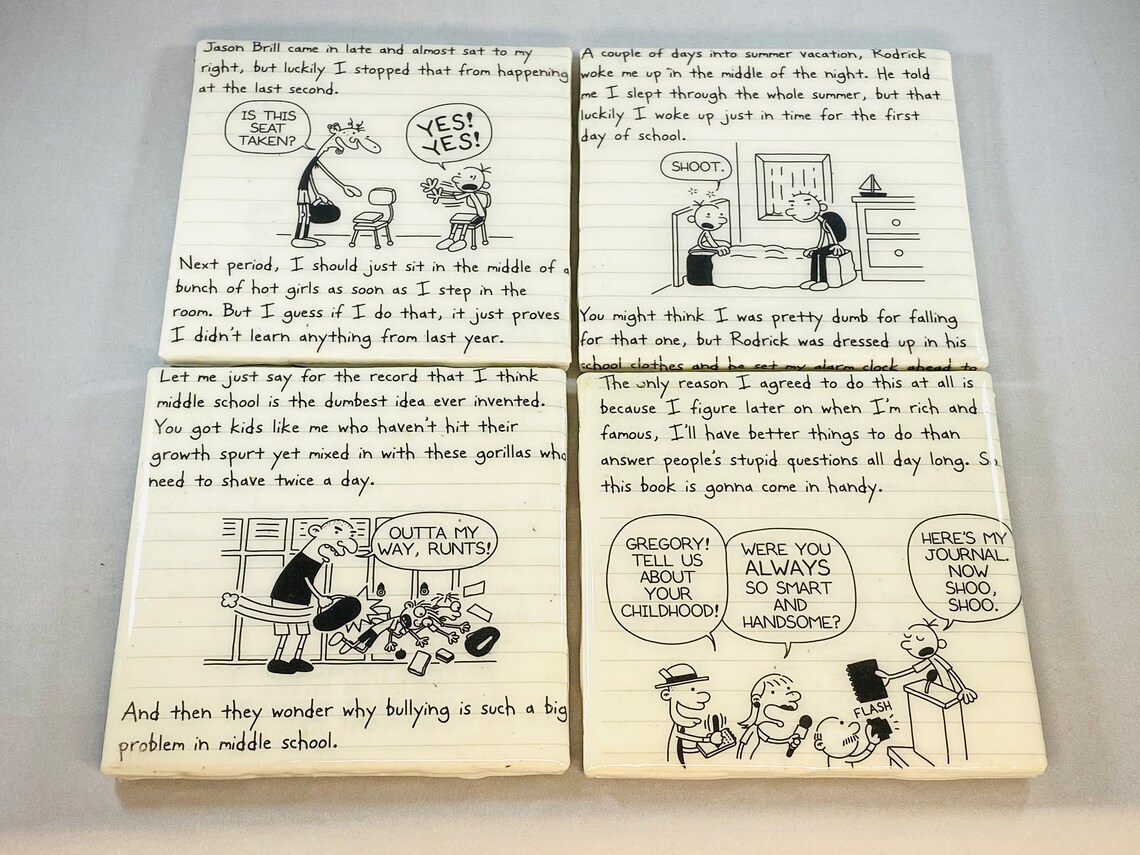 Jason Brill came in late and almost sat to my
right, but luckily I stopped that from happening
at the last second.
IS THIS
SEAT
TAKEN?
YES!
YES!
Next period, I should just sit in the middle of a
bunch of hot girls as soon as I step in the
room. But I guess if I do that, it just proves
I didn't learn anything from last year.
A couple of days into summer vacation, Rodrick
woke me up in the middle of the night. He told
me I slept through the whole summer, but that
luckily I woke up just in time for the first
day of school.
SHOOT.
You might think I was pretty dumb for falling
for that one, but Rodrick was dressed up in his
school clothes and he set my alarm clock ahead to
Let me just say for the record that I think
middle school is the dumbest idea ever invented.
You got kids like me who haven't hit their
growth spurt yet mixed in with these gorillas who
need to shave twice a day.
OUTTA MY
WAY, RUNTS!
And then they wonder why bullying is such a big
problem in middle school.
The only reason I agreed to do this at all is
because I figure later on when I'm rich and
famous, I'll have better things to do than
answer people's stupid questions all day long. So
this book is gonna come in handy.
GREGORY!
TELL US
ABOUT
YOUR
CHILDHOOD!
WERE YOU
ALWAYS
SO SMART
AND
HANDSOME?
HERE'S MY
JOURNAL.
NOW
SHOO,
SHOO.
FLASH